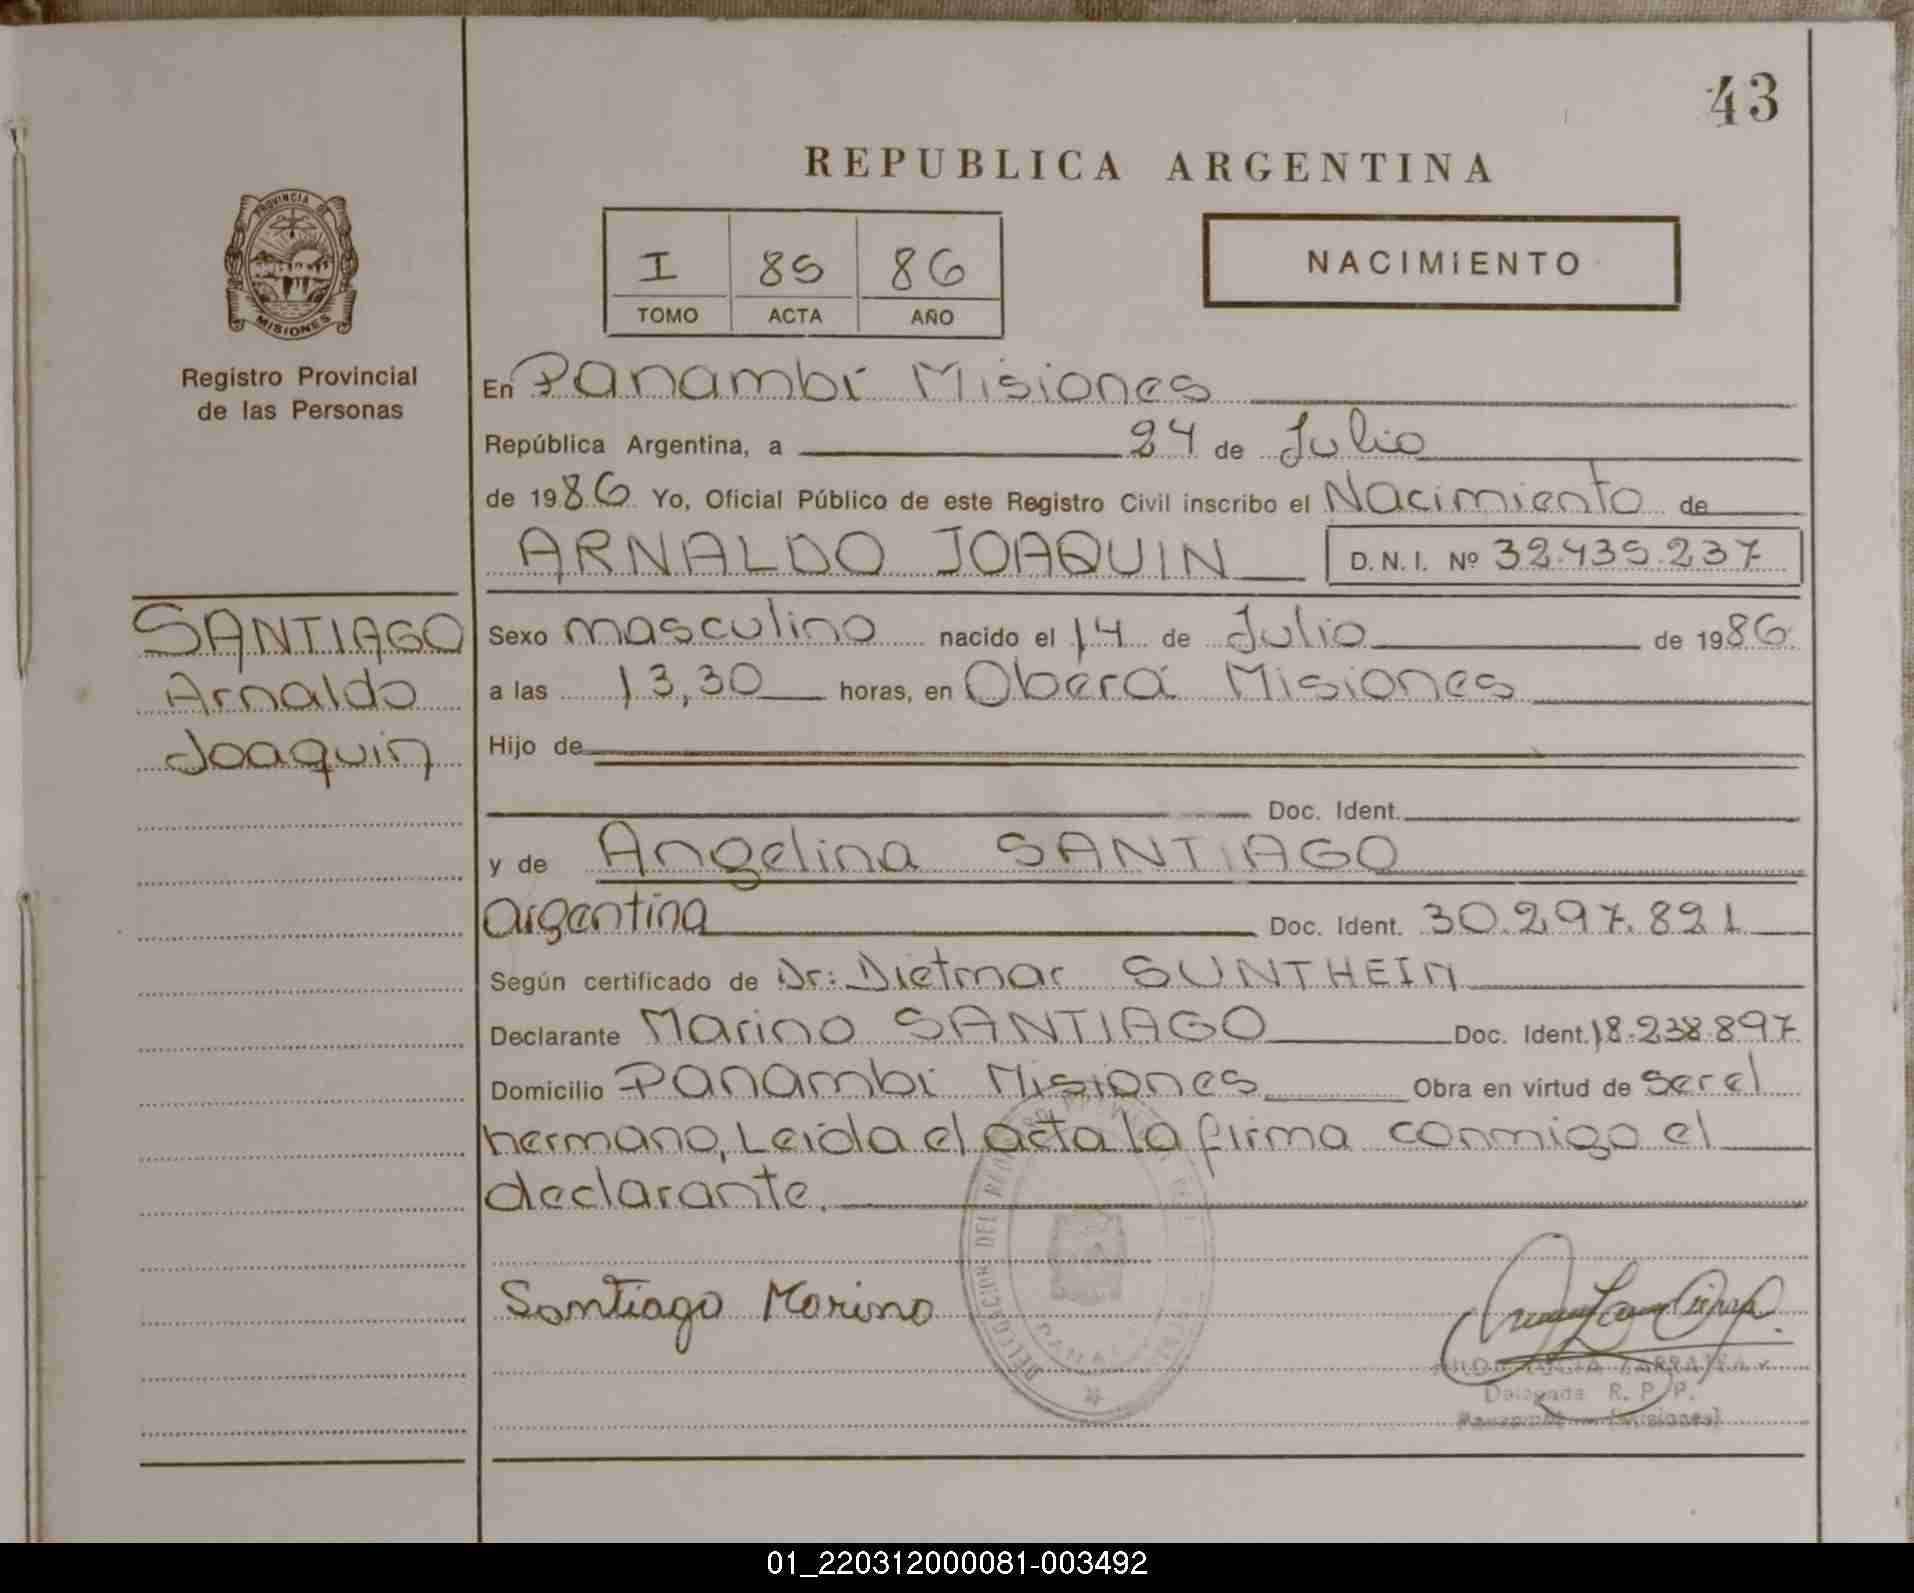 43
REPUBLICA ARGENTINA
PROVINCIA DE
MISIONES
Registro Provincial
de las Personas
I 85 86
TOMO ACTA AÑO
NACIMIENTO
En Panambí Misiones
República Argentina, a 24 de Julio
de 1986 Yo, Oficial Público de este Registro Civil inscribo el Nacimiento de
ARNALDO JOAQUIN D.N.I. Nº 32.435.237
SANTIAGO
Arnaldo
Joaquin
Sexo masculino nacido el 14 de Julio de 1986
a las 13,30 horas, en Oberá Misiones
Hijo de
Doc. Ident.
y de Angelina SANTIAGO
argentina Doc. Ident. 30.297.821
Según certificado de Dr: Dietmar SUNTHEIM
Declarante Marino SANTIAGO Doc. Ident. 18.238.897
Domicilio Panambí Misiones Obra en virtud de ser el
hermano, Leída el acta la firma conmigo el
declarante.
Santiago Marino
DELEGACION DEL
Delegada R. P. P.
Panambí (Misiones)
01_220312000081-003492